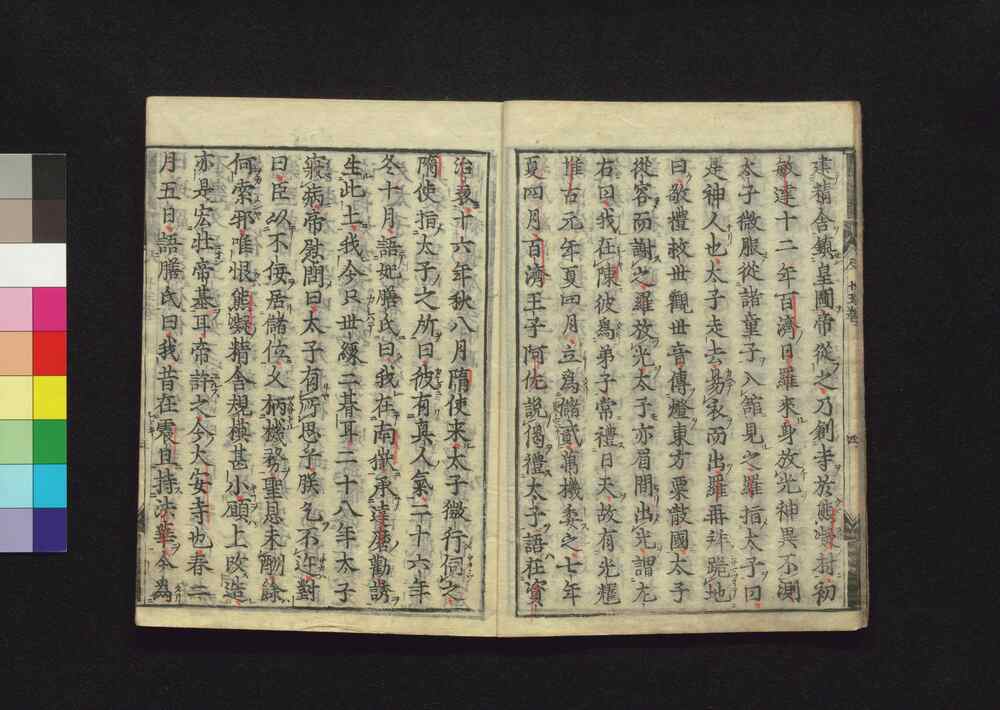 建精舍鎮皇圖帝從之乃創寺於熊凝村初
敏達十二年百濟日羅來身放光神異不測
太子微服從諸童子入館見之羅指太子曰
是神人也太子走去易衣而出羅再拜跪地
曰敬禮救世觀世音傳燈東方粟散國太子
從容而謝之羅放光太子亦眉間出光謂左
右曰我在陳彼爲弟子常禮日天故有光耀
推古元年夏四月立爲儲貳萬機委之七年
夏四月百濟王子阿佐說偈禮太子語在資
治表十六年秋八月隋使來太子微行伺之
隋使指太子之所曰彼有真人氣二十六年
冬十月語妃膳氏曰我在南嶽承達磨勸誘
生此土我今只世緣二暮耳二十八年太子
寢病帝慰問曰太子有所思乎朕乞不迕對
曰臣以不佞居儲位又柄機務聖恩未酬餘
何索邪唯恨熊凝精舍規模甚小願上改造
亦是宏壯帝基耳帝許之今大安寺也春二
月五日語膳氏曰我昔在震旦持法華今爲